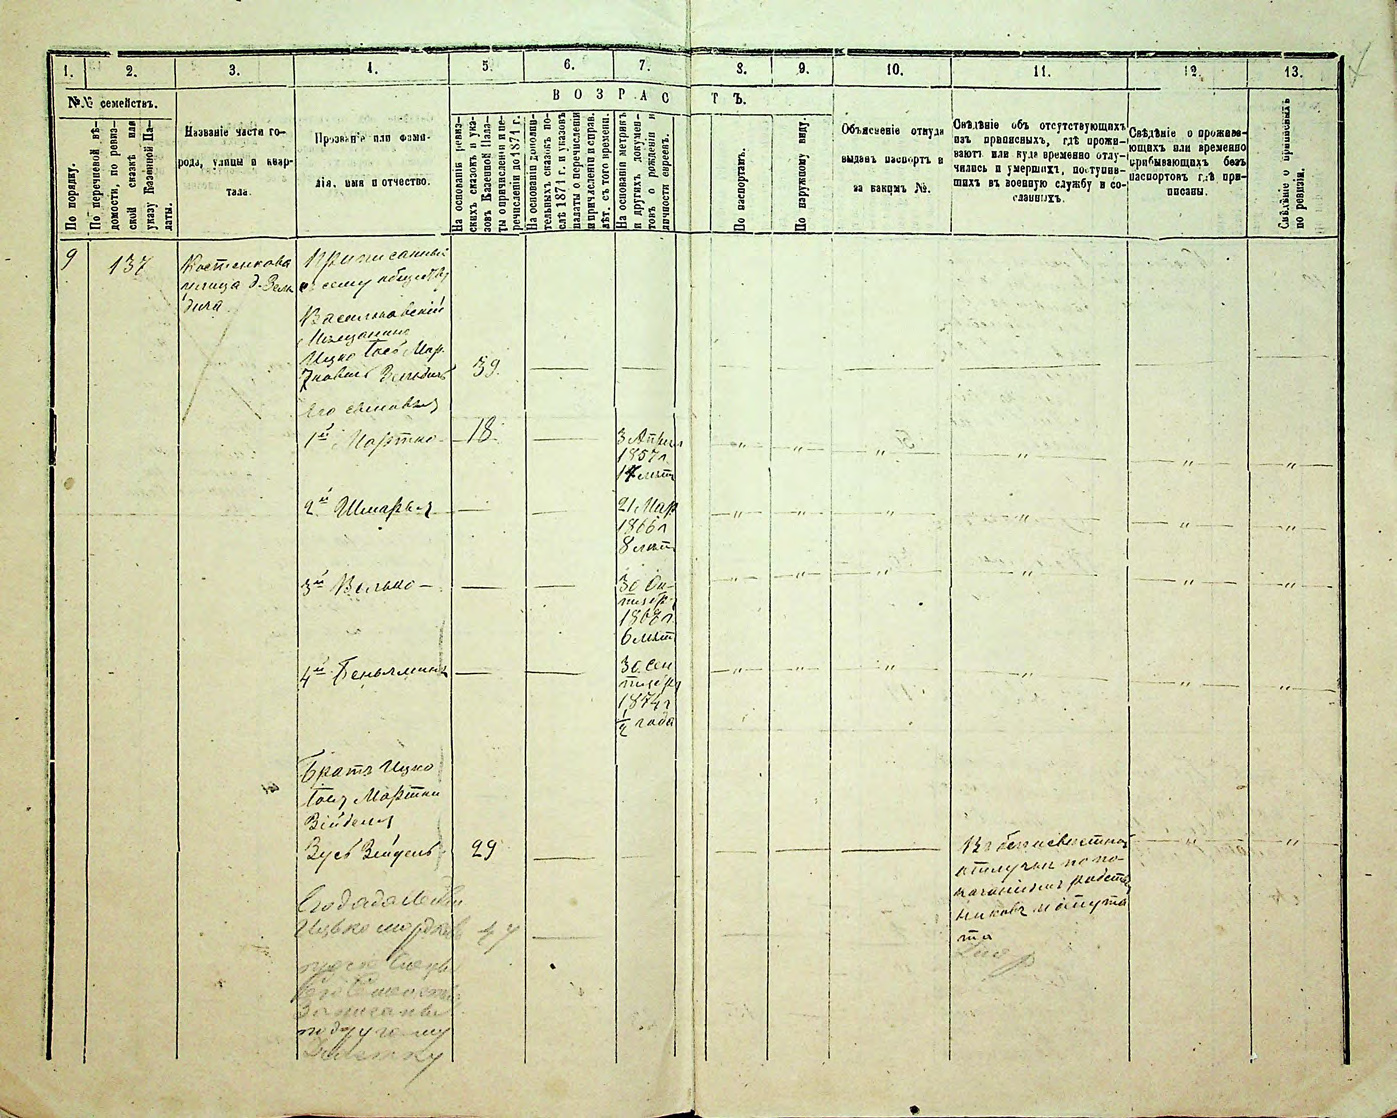 1.
2.
3.
4.
5.
6.
7.
8.
9.
10.
11.
12.
13.
№№ семействъ.
По порядку.
По перечневой вѣ-
домости, по ревиз-
ской сказкѣ или
указу Казенной Па-
латы.
Названіе части го-
рода, улицы и квар-
тала.
Прозваніе или фами-
лія, имя и отчество.
ВОЗРАСТЪ.
На основаніи ревиз-
скихъ сказокъ и ука-
зовъ Казенной Пала-
ты о причисленіи и пе-
речисленіи до 1871 г.
На основаніи дополни-
тельныхъ сказокъ по-
слѣ 1871 г. и указовъ
палаты о перечисленіи
и причисленіи и справ.
лѣт. съ того времени.
На основаніи метрикъ
и другихъ докумен-
товъ о рожденіи и
личности евреевъ.
По паспортамъ.
По наружному виду.
Объясненіе откуда
выданъ паспортъ и
за какимъ №.
Свѣдѣніе объ отсутствующихъ
изъ приписныхъ, гдѣ прожи-
ваютъ или куда временно отлу-
чились и умершихъ, поступив-
шихъ въ военную службу и со-
сланныхъ.
Свѣдѣніе о прожива-
ющихъ или временно
прибывающихъ безъ
паспортовъ гдѣ при-
писаны.
Свѣдѣніе о приписныхъ
по ревизіи.
9
137
Костенкова
улица д.
Приписанный
къ сему обществу
Васильковскій
Мѣщанинъ
Ицко Іось Мор
39
Его сыновья
1й Мортко
18
3 Апрѣл
1857 г
2й Шмарья
21 Мар
1866 г
8 лѣтъ
3й Волько
30 Ок-
тября
1868 г
6 лѣтъ
4й Беньяминъ
30 Сен
тября
1874 г
1/2 года
Братъ Ицко
Іося Мортки
Зейделя
Зусь Зейдель
29
Въ безизвѣстной
отлучкѣ по по-
казанію родст
и депута
та
Ицько
47
Его Семейство
Записаны
по другому